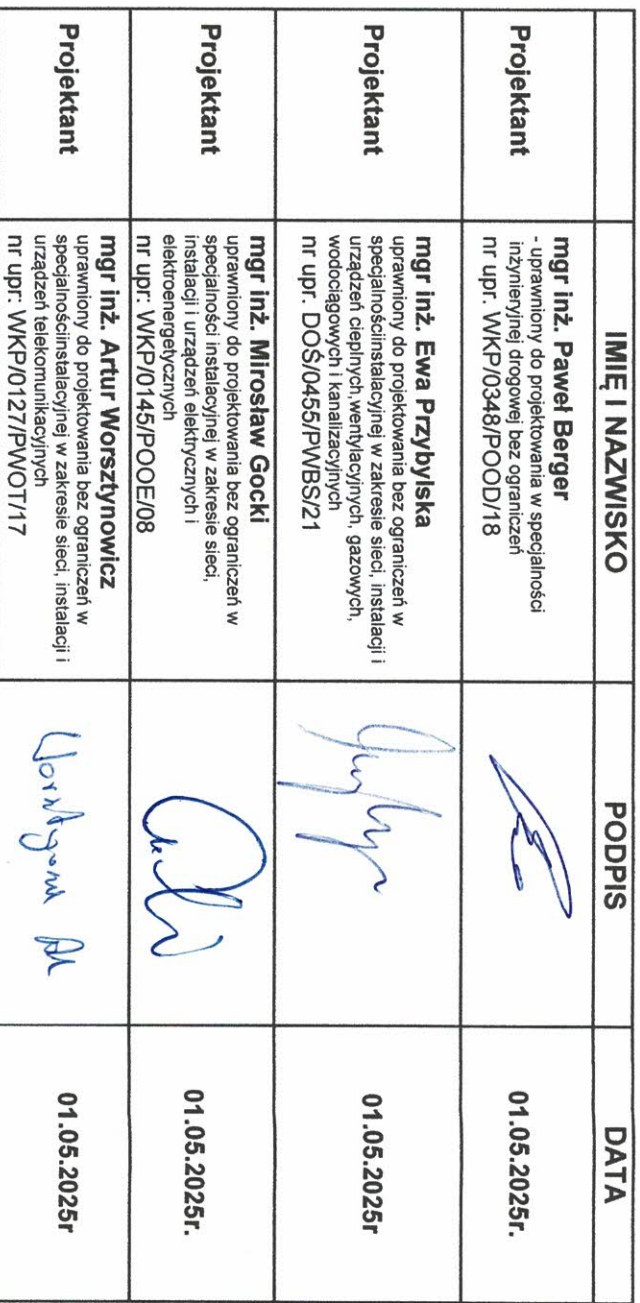 IMIĘ I NAZWISKO PODPIS DATA
Projektant
mgr inż. Paweł Berger
- uprawniony do projektowania w specjalności
inżynieryjnej drogowej bez ograniczeń
nr upr. WKP/0348/POOD/18
01.05.2025r.
Projektant
mgr inż. Ewa Przybylska
uprawniony do projektowania bez ograniczeń w
specjalnościinstalacyjnej w zakresie sieci, instalacji i
urządzeń cieplnych,wentylacyjnych, gazowych,
wodociągowych i kanalizacyjnych
nr upr. DOŚ/0455/PWBS/21
01.05.2025r
Projektant
mgr inż. Mirosław Gocki
uprawniony do projektowania bez ograniczeń w
specjalności instalacyjnej w zakresie sieci,
instalacji i urządzeń elektrycznych i
elektroenergetycznych
nr upr. WKP/0145/POOE/08
01.05.2025r.
Projektant
mgr inż. Artur Worsztynowicz
uprawniony do projektowania bez ograniczeń w
specjalnościinstalacyjnej w zakresie sieci, instalacji i
urządzeń telekomunikacyjnych
nr upr. WKP/0127/PWOT/17
01.05.2025r